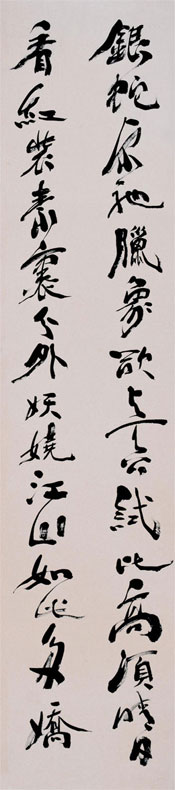 銀蛇原馳臘象欲与天公試比高須晴日
看紅裝素裹分外妖嬈江山如此多嬌